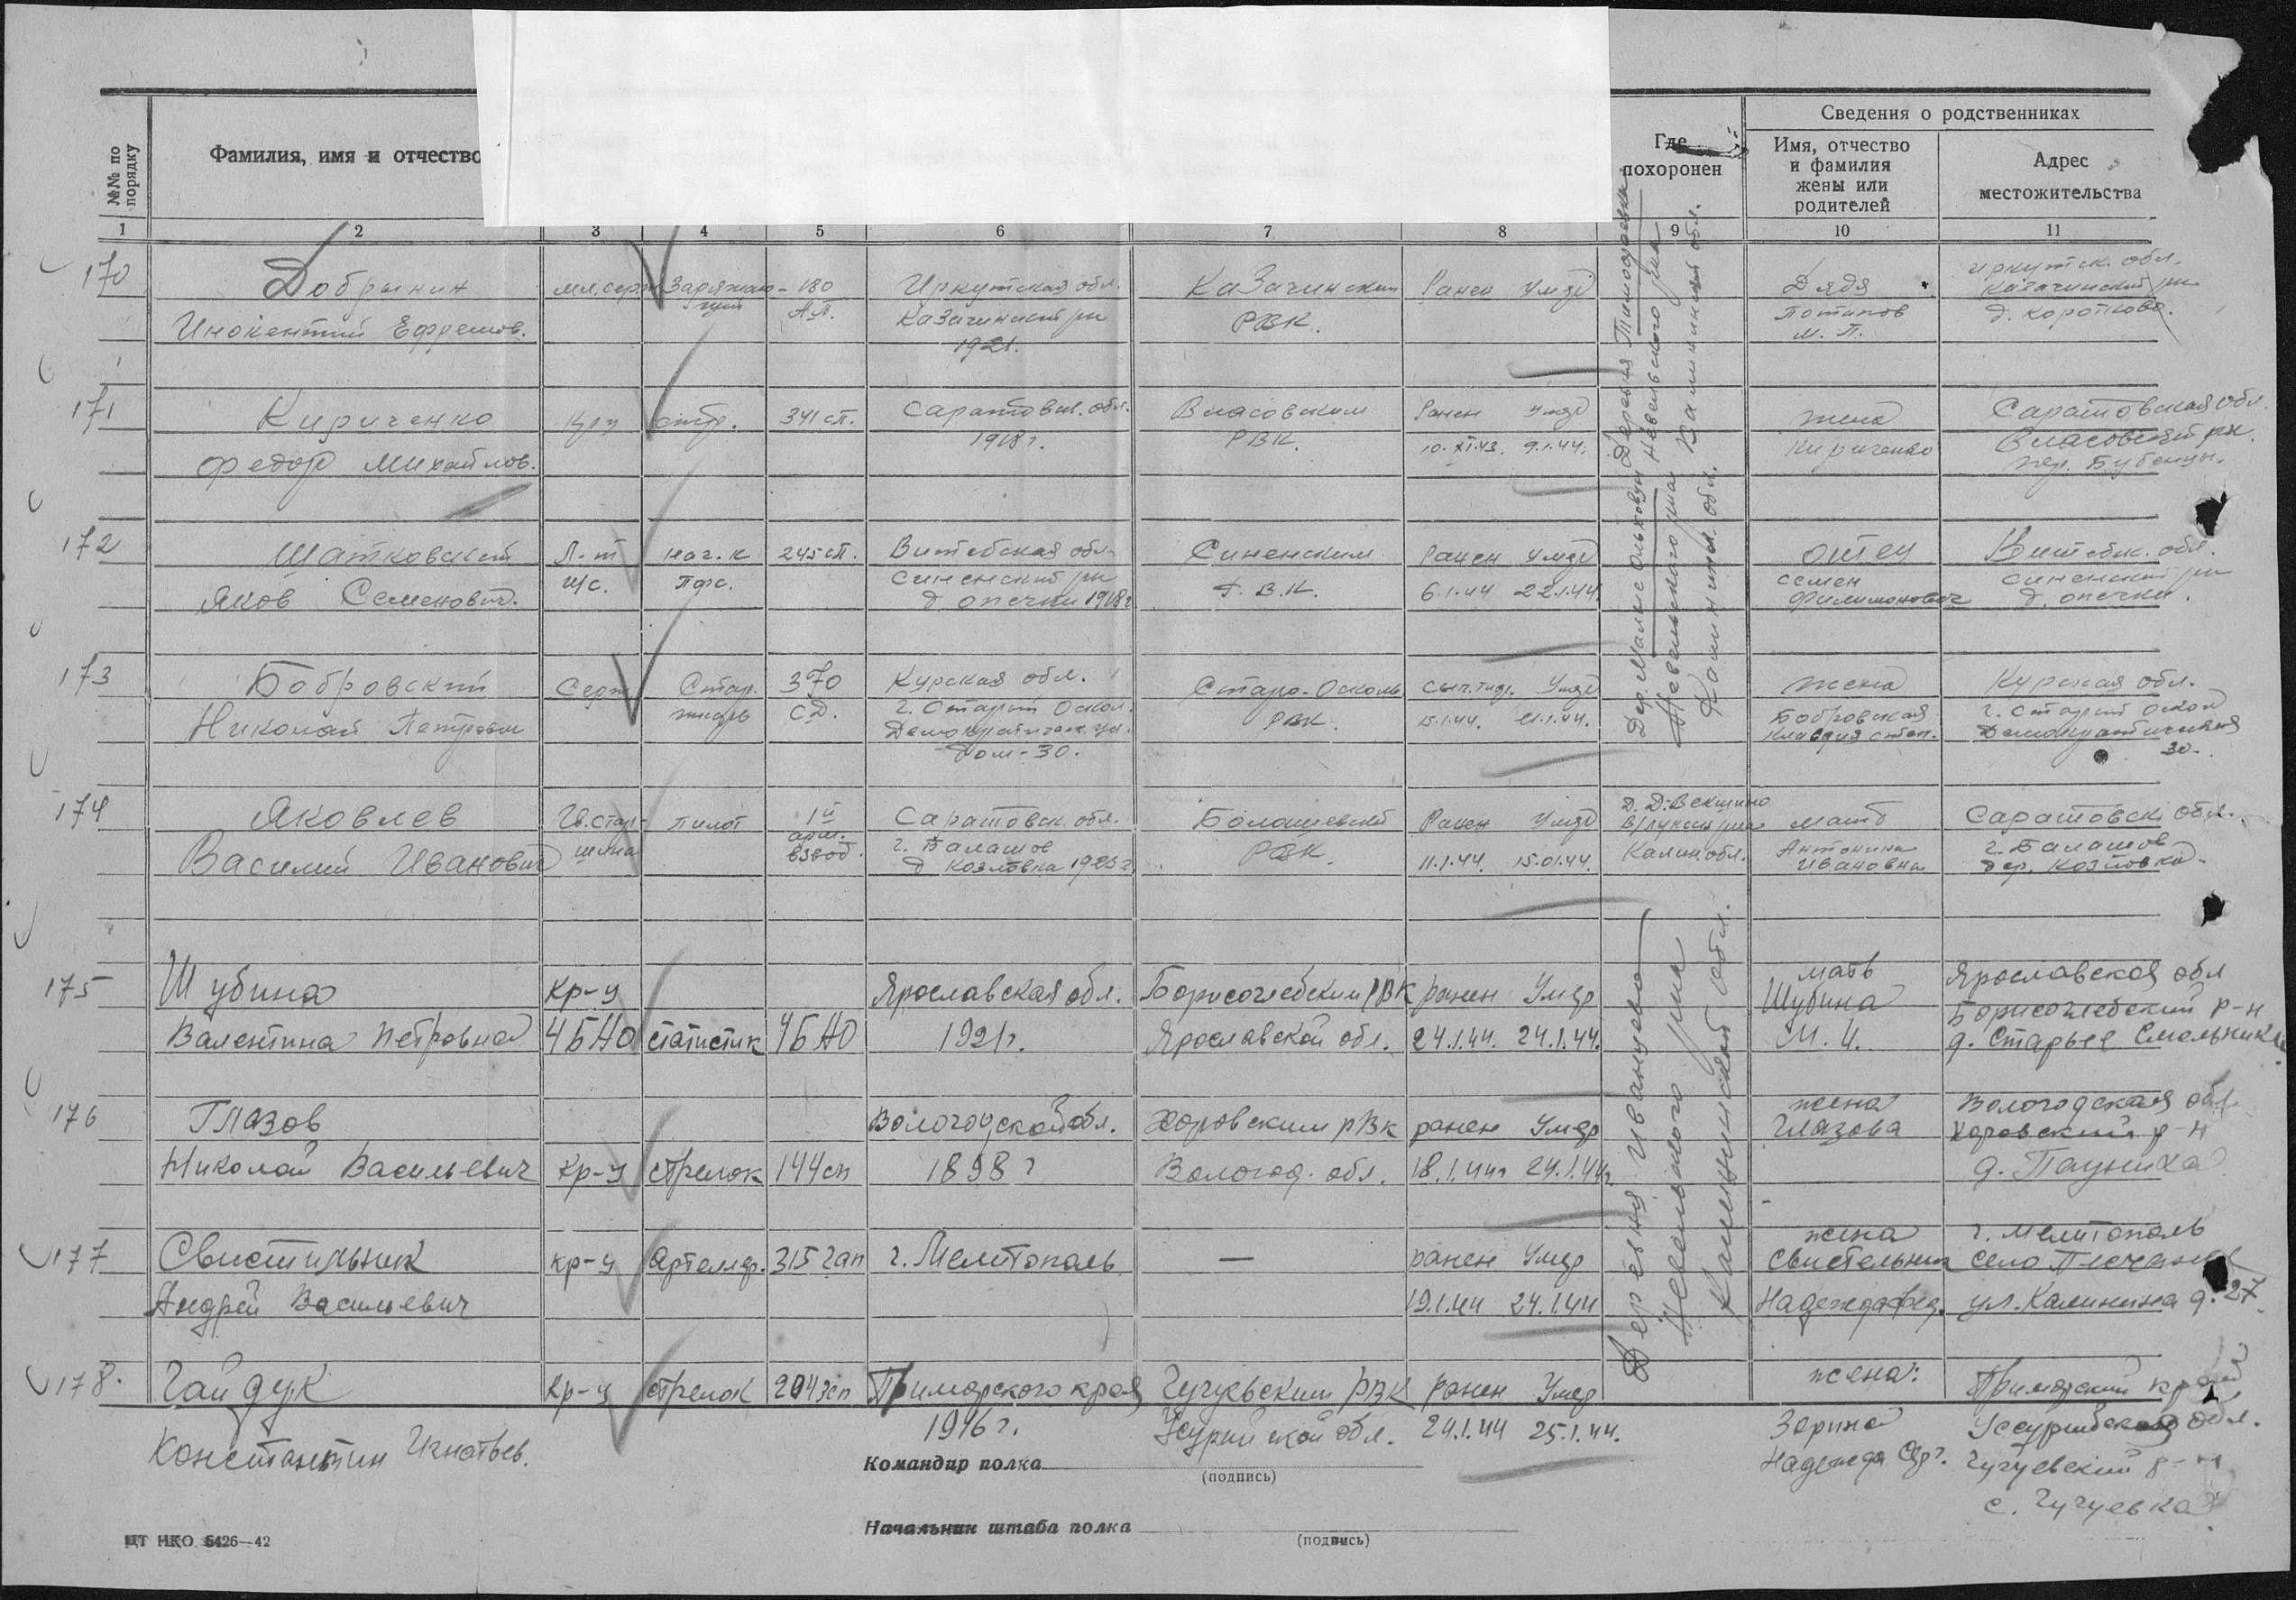 №№ по порядку
Фамилия, имя и отчество
Где похоронен
Сведения о родственниках
Имя, отчество и фамилия жены или родителей
Адрес местожительства
1 2 3 4 5 6 7 8 9 10 11
170 Добрынин мл. серж Заряжаю- 180 Иркутская обл. Казачинским Ранен Умер Дядя Иркутск. обл.
Инокентий Ефремов. щий АП. Казачинский рн РВК. Потапов Казачинский рн
1921. М. П. д. Коротково.
171 Кириченко кр-ц стр. 341 сп. Саратовск. обл. Власовским Ранен Умер жена Саратовская обл.
Федор Михайлов. 1918 г. РВК. 10.XI.43. 9.1.44. Кириченко Власовский рн.
172 Шатковский Л-т нач. к 245 сп. Витебская обл. Синенским Ранен Умер отец Витебск. обл.
Яков Семенович. и/с. ПФС. Синенский рн Р.В.К. 6.1.44 22.1.44. Семен Синенский рн
д. Опечки 1918 г Филимонович д. Опечки.
173 Бобровский Серж Стар. 370 Курская обл. Старо-Осколь Умер жена Курская обл.
Николай Петрович СД. г. Старый Оскол. РВК. 15.1.44. 21.1.44. Бобровская г. Старый Оскол
Демократическ. ул. Клавдия степ. Демократическая
Дом-30. 30.
Дер. Малые Ольховуи Деревня Тимофеевка
Невельского р-на Невельского р-на
Калинин. обл. Калининской обл.
174 Яковлев Гв. Стар- пилот 1й Саратовск. обл. Болашевский Ранен Умер Д. Д-Векшино мать Саратовск. обл.
Василий Иванович шина арт. взвод. г. Балашов РВК. 11.1.44. 15.01.44. В/Лукск. р-на Антонина г. Балашов
д Козловка 1925 г Калин. обл. Ивановна Дер. Козловка.
175 Шубина Кр-ц Ярославская обл. Борисоглебским РВК ранен Умер мать Ярославская обл
Валентина Петровна 4 БАО статистик 4 БАО 1921 г. Ярославской обл. 24.1.44. 24.1.44. Шубина Борисоглебский р-н
М. И. д. Старые Смольники
176 Глазов Вологодской обл. Харовским РВК ранен Умер жена Вологодская обл
Николай Васильевич Кр-ц стрелок 144 сп 1898 г Вологод. обл. 18.1.44 г 24.1.44 г. Глазова Харовский р-н
д. Пауниха
Деревня Иванцево
Невельского р-на
Калининской обл.
177 Свистильник кр-ц Артеллер. 315 гап г. Мелитополь — ранен Умер жена г. Мелитополь
Андрей Васильевич 19.1.44 24.1.44 Свистельник село Песчаное
Надежда Фед. ул. Калинина д. 27
178. Гайдук кр-ц стрелок 204 зсп Приморского края Чугуевским РВК ранен Умер жена: Приморский край
Константин Игнатьев. 1916 г. Усурийской обл. 24.1.44 25.1.44. Зорина Уссурийская обл.
Надежда Чугуевский р-н
с. Чугуевка
Командир полка
(подпись)
Начальник штаба полка
(подпись)
ЦТ НКО 5426—42